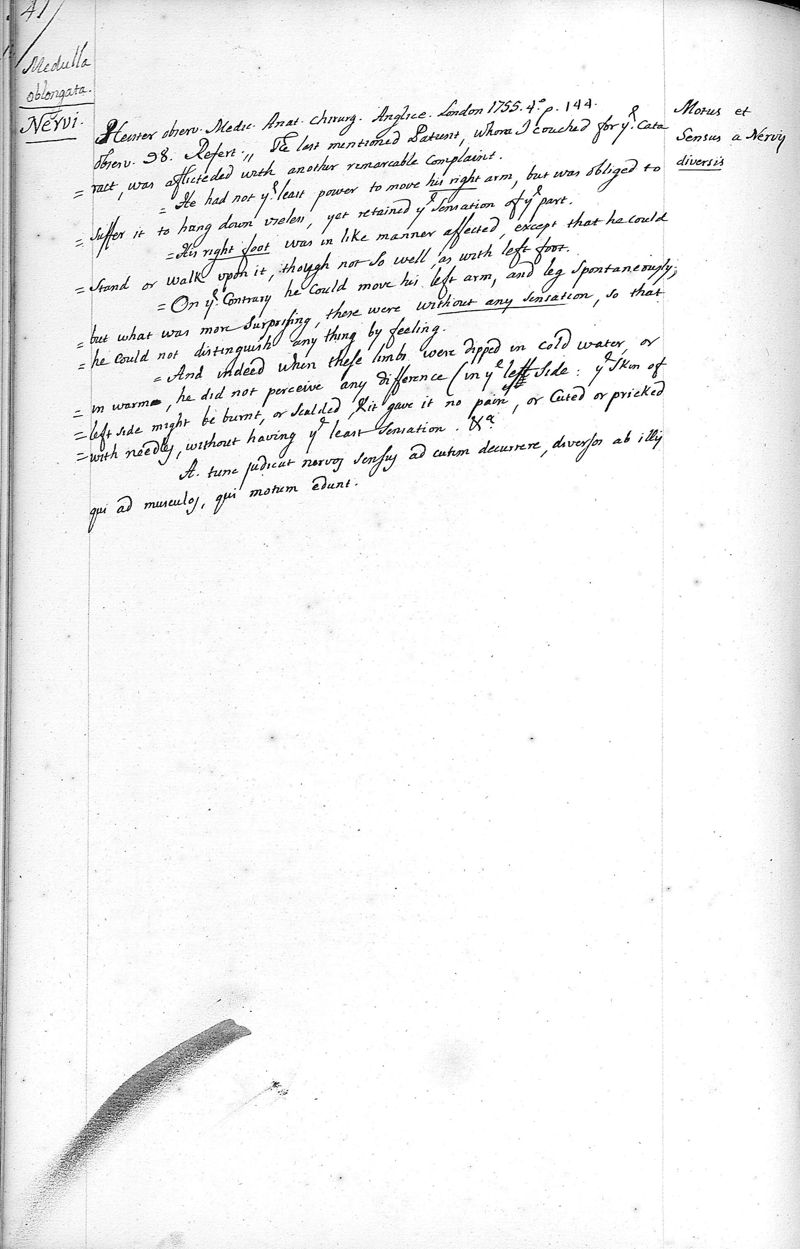 41
Medulla
oblongata.
Nervi.
Motus et
Sensus a Nervis
diversis
Heister observ. Medic. Anat. Chirurg. Anglice. London 1755. 4º. p. 144.
observ. 98. Refert. „ The last mentioned Patient, whom I couched for yᵉ Cata
= ract, was aflicteded with another remarcable Complaint.
= He had not yᵉ least power to move his right arm, but was obliged to
= suffer it to hang down useless, yet retained yᵉ Sensation of yᵉ part.
= His right foot was in like manner affected, except that he could
= stand or walk upon it, though not so well, as with left foot.
= On yᵉ Contrary he Could move his left arm, and leg Spontaneously;
= but what was more Surprising, these were without any sensation, so that
= he Could not distinguish any thing by feeling.
= And indeed when these limbs were dipped in cold water, or
= in warme, he did not perceive any difference (in yᵉ left Side: yᵉ Skin of
= left side might be burnt, or scalded, & it gave it no pain, or Cuted or pricked
= with needles, without having yᵉ least Sensation. &ᵃ
A. tunc judicat nervos sensus ad cutim decurrere, diversos ab illis
qui ad musculos, qui motum edunt.